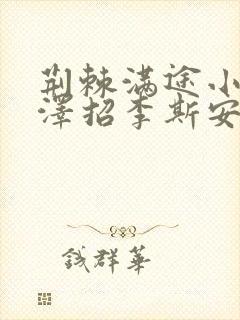 荆棘满途小
泽招李斯安
钱群华